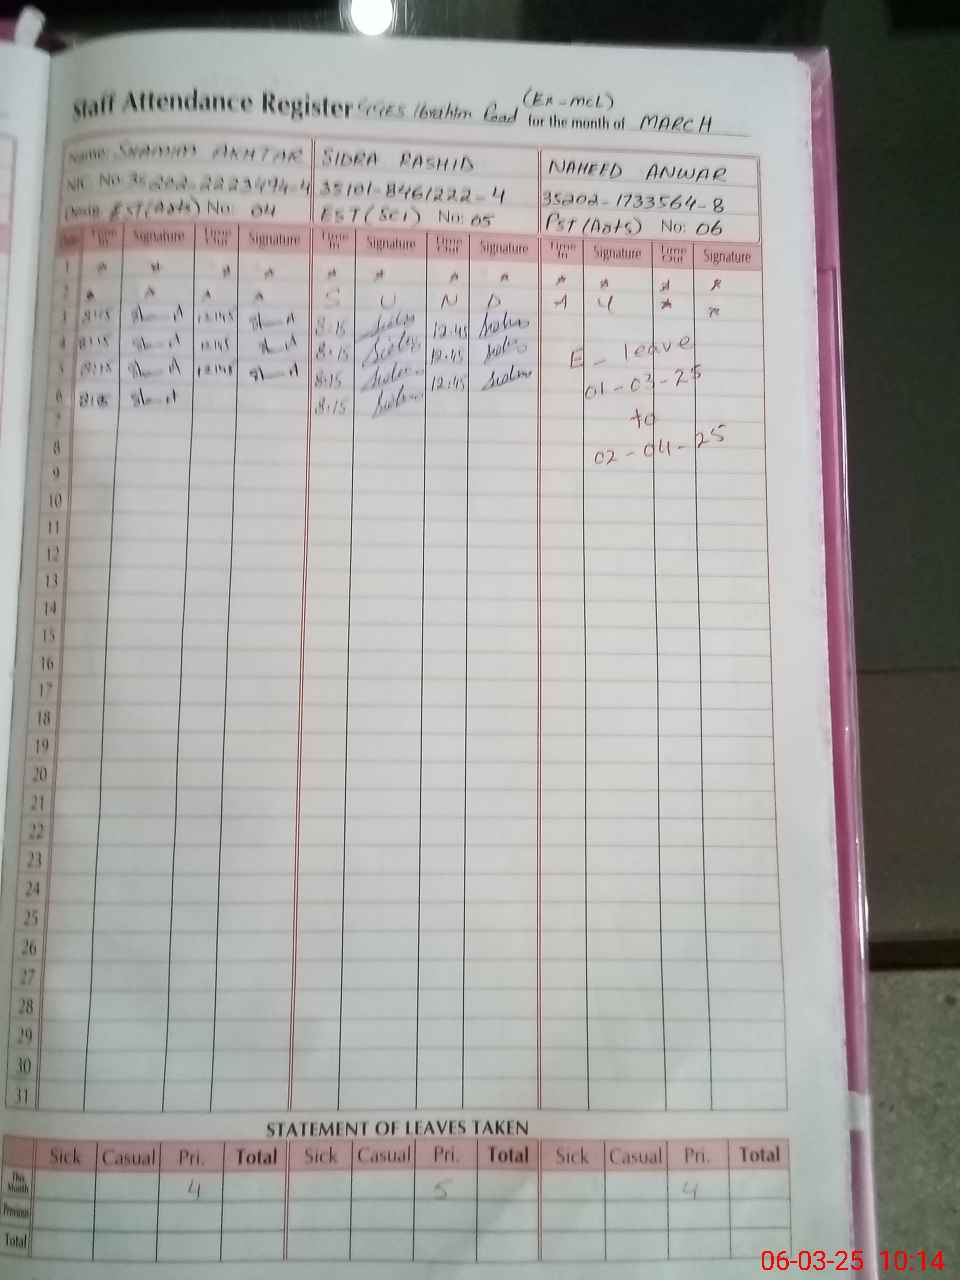 Staff Attendance Register Ibrahim Road (Ex-MCL) for the month of MARCH
Name: SHAMIM AKHTAR SIDRA RASHID NAHEED ANWAR
NIC. No. 35202-2223494-4 35101-8461222-4 35202-1733564-8
Desig. EST (Arts) No: 04 EST (SCI) No: 05 PST (Arts) No: 06
Date Time In Signature Time Out Signature Time In Signature Time Out Signature Time In Signature Time Out Signature
1 * * * * * * * * * * * *
2 * * * * S U N D A Y * *
3 8:15 12:45 8:15 Sidra 12:45 Sidra
4 8:15 12:45 8:15 Sidra 12:45 Sidra E-leave
5 8:15 12:45 8:15 Sidra 12:45 Sidra 01-03-25
6 8:15 8:15 Sidra
7 to
8 02-04-25
9
10
11
12
13
14
15
16
17
18
19
20
21
22
23
24
25
26
27
28
29
30
31
STATEMENT OF LEAVES TAKEN
Sick Casual Pri. Total Sick Casual Pri. Total Sick Casual Pri. Total
This Month 4 5 4
Previous
Total
06-03-25 10:14